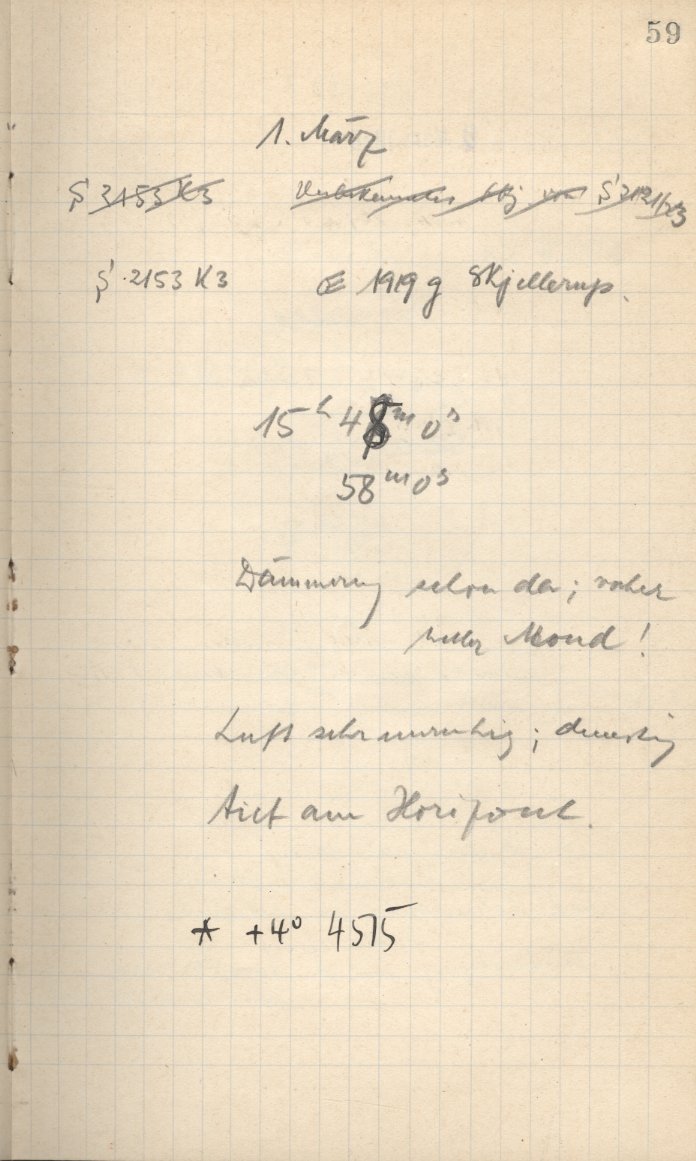 59
1. März
2153 K3 Unbekanntes Obj. von
2153 K3 1919 g Skjellerup.
15h 48m 0s
58m 0s
Dämmerung schon da; vorher
heller Mond!
Luft sehr unruhig; dunstig
tief am Horizont.
* +4° 4575